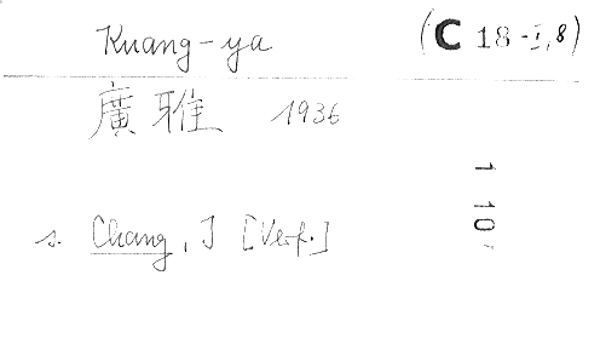 Kuang-ya (C 18-I,8)
廣雅 1936
s. Chang, I [Verf.]
1 10